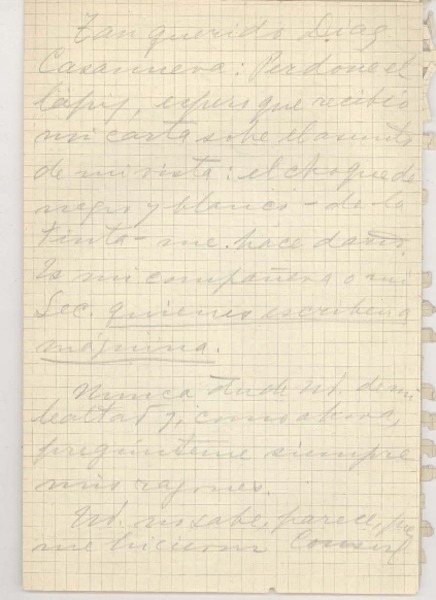 Tan querido Díaz
Casanueva: Perdone el
lápiz, espero que recibió
mi carta sobre el asunto
de mi vista: el choque de
negro y blanco - de la
tinta - me hace daño.
Es mi compañera o mi
Sec. quienes escriben a
máquina.
Nunca dude Ud. de mi
lealtad y, como ahora,
pregúnteme siempre
mis razones.
Ud. no sabe, parece, que
me hicieron Consul